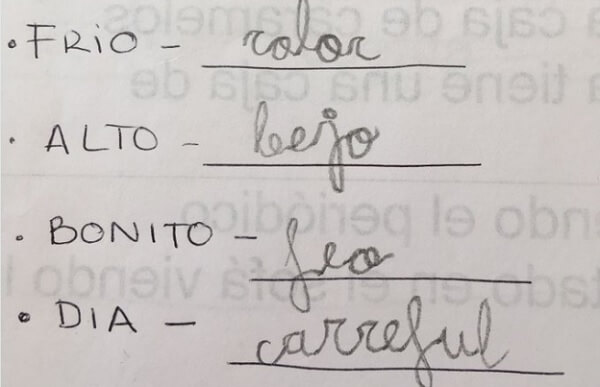 • FRIO - calor
• ALTO - bejo
• BONITO - feo
• DIA - carreful